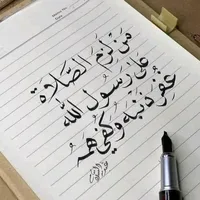 من لزم الصلاة
على رسول الله
غفر ذنبه وكفي همه